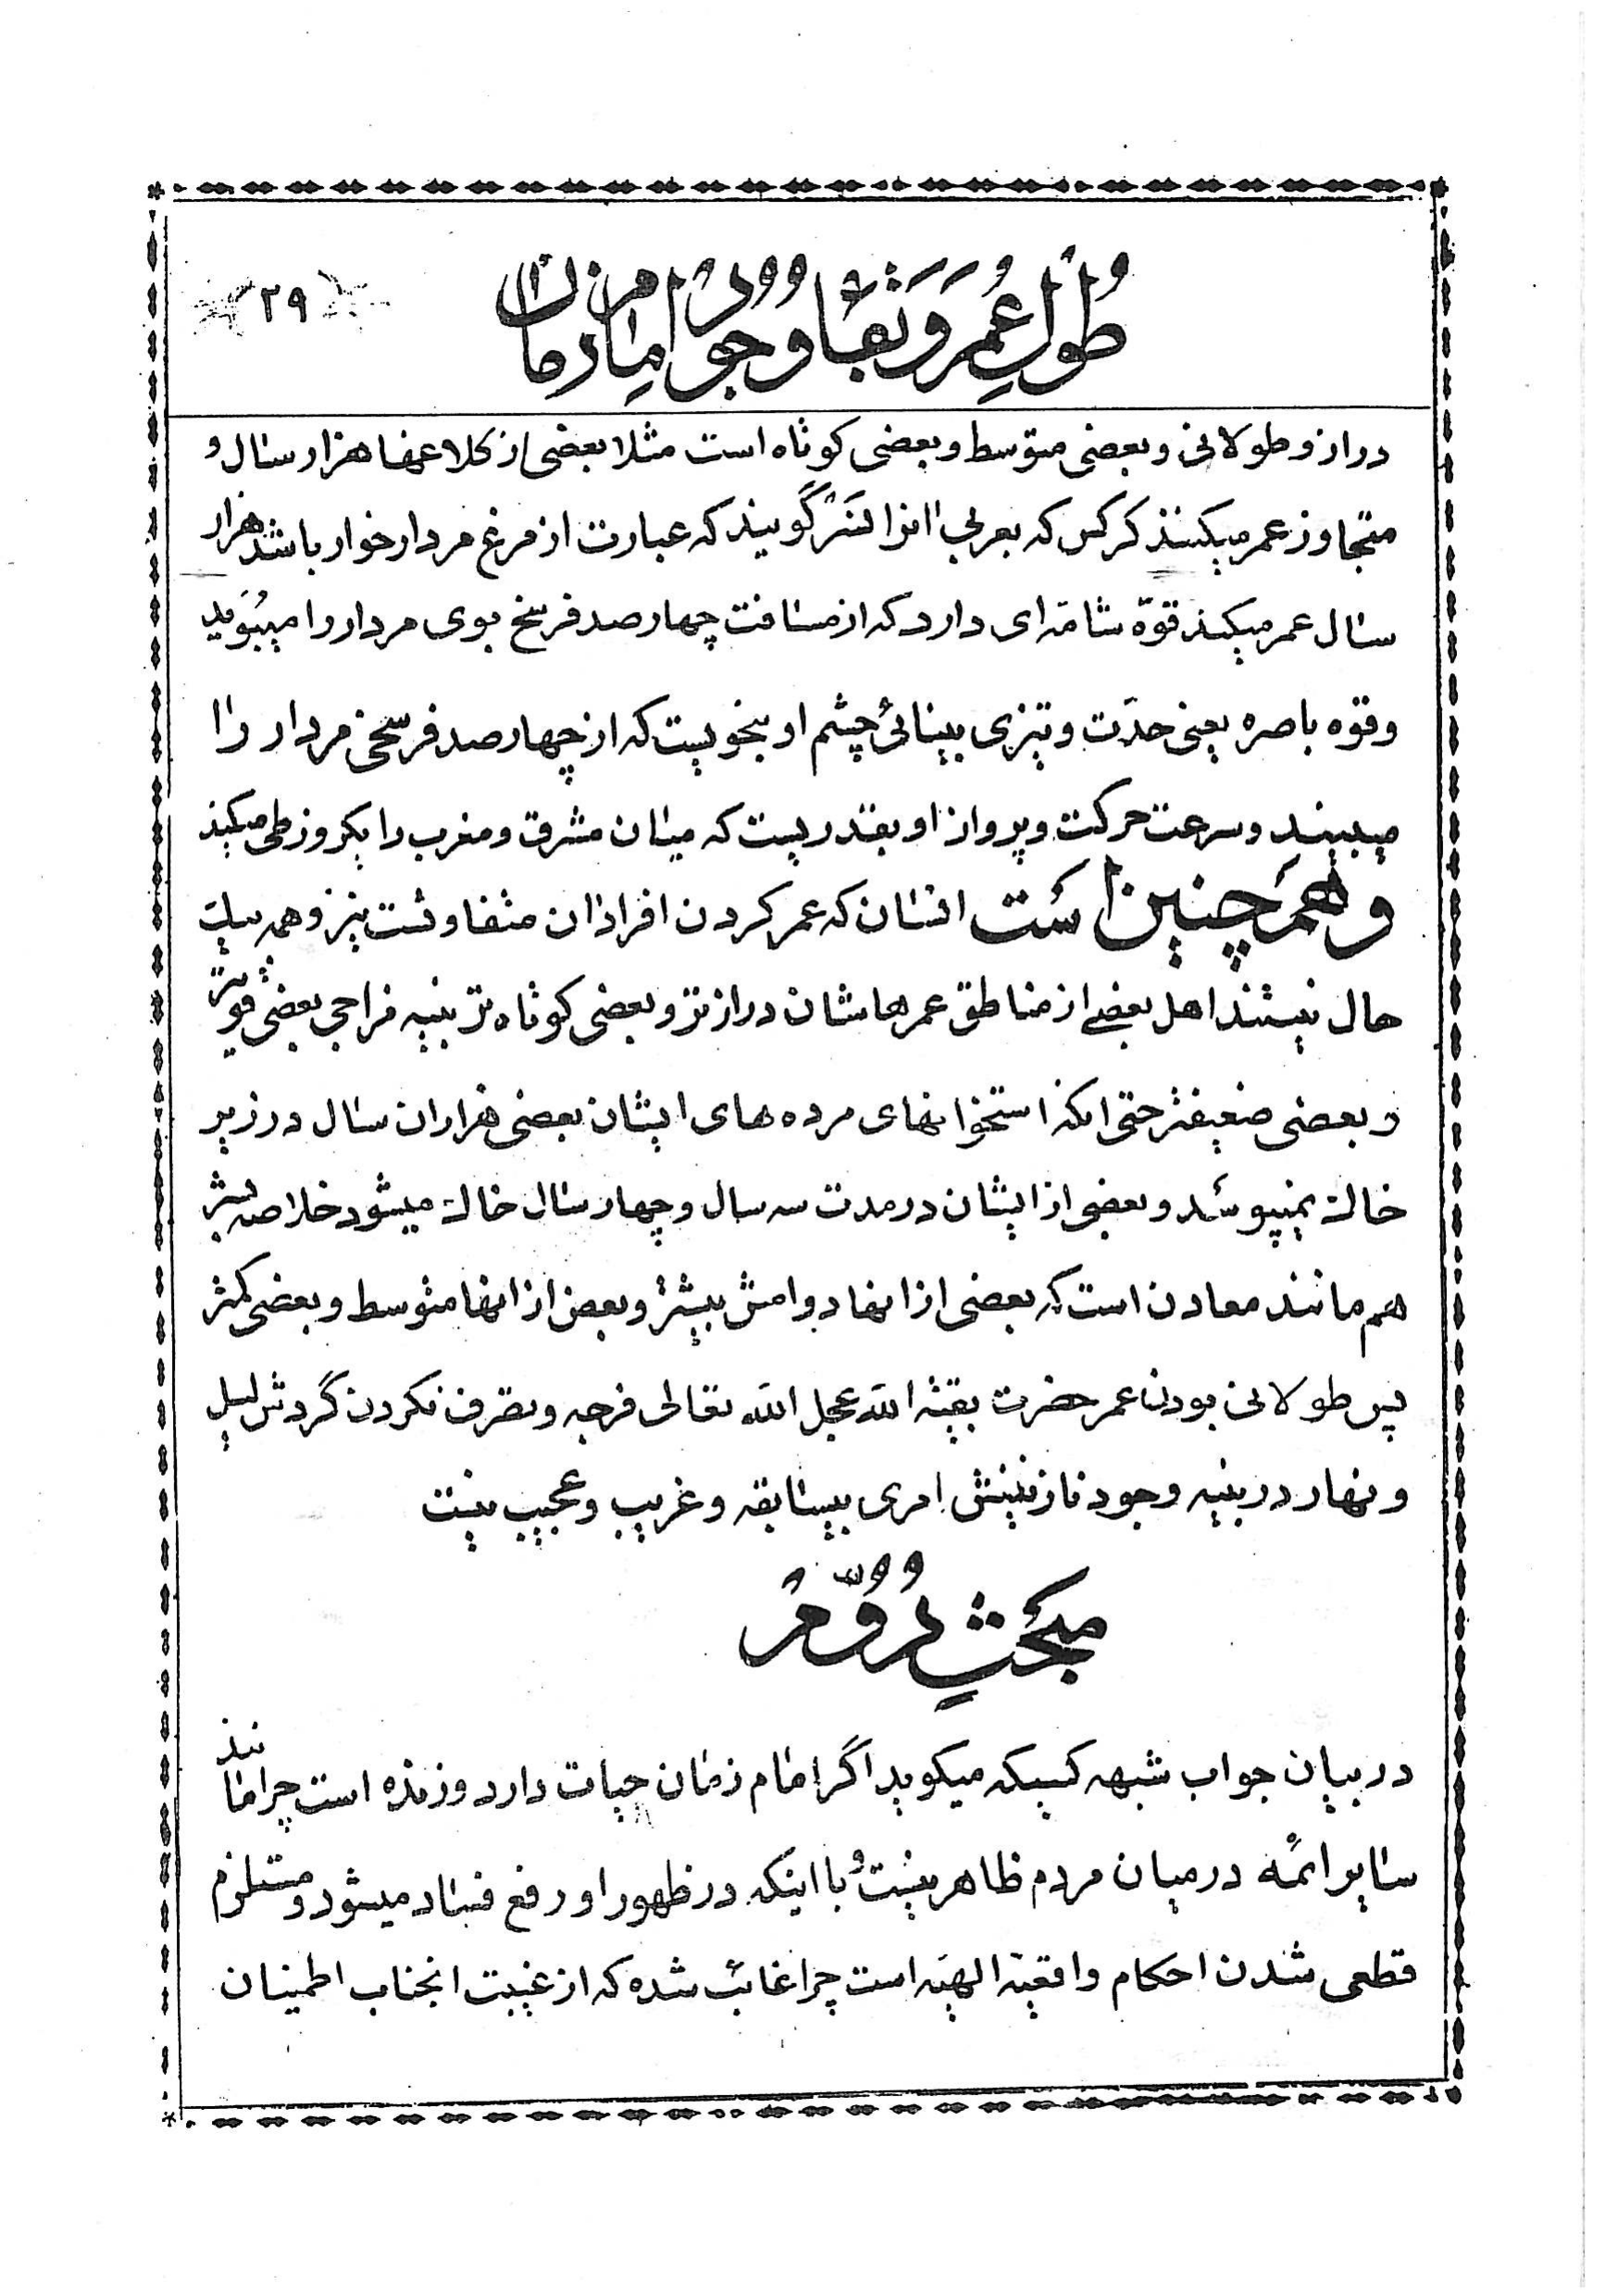 طُولِ عُمر وَ بَقاء وُجُودِ امام زمان
﴿۲۹﴾
دراز و طولانی و بعضی متوسط و بعضی کوتاه است مثلا بعضی از کلاغها هزار سال و
متجاوز عمر میکنند کرکس که بعربی انرا نَسْر گویند که عبارت از مرغ مردار خوار باشد هزار
سال عمر میکند قوّه شامّه ای دارد که از مسافت چهار صد فرسخ بوی مردار را میبُوَید
و قوه باصره یعنی حدّت و تیزی بینائی چشم او بنحویست که از چهار صد فرسخی مردار را
میبیند و سرعت حرکت و پرواز او بقدریست که میان مشرق و مغرب را یکروز طی میکند
و همچنین است انسان که عمر کردن افراد ان متفاوتست نیز و همه بیک
حال نیستند اهل بعضی از مناطق عمرهاشان درازتر و بعضی کوتاه تر بنیه مزاجی بعضی قویتر
و بعضی ضعیفتر حتی انکه استخوانهای مرده های ایشان بعضی هزاران سال در زیر
خاک نمیپوسد و بعضی از ایشان در مدت سه سال و چهار سال خاک میشود خلاصه بشر
هم مانند معادن است که بعضی از انها دوامش بیشتر و بعض از انها متوسط و بعضی کمتر
پس طولانی بودن عمر حضرت بقیّة الله عجل الله تعالی فرجه و تصرف نکردن گردش لیل
و نهار در بنیه وجود نازنینش امری بیسابقه و غریب و عجیب نیست
مَبحَثِ دُوّم
در بیان جواب شبهه کسیکه میکوید اگر امام زمان حیات دارد و زنده است چرا مانند
سایر ائمّه در میان مردم ظاهر نیست و با اینکه در ظهور او رفع فساد میشود و مستلزم
قطعی شدن احکام واقعیّه الهیّه است چرا غائب شده که از غیبت انجناب اطمینان